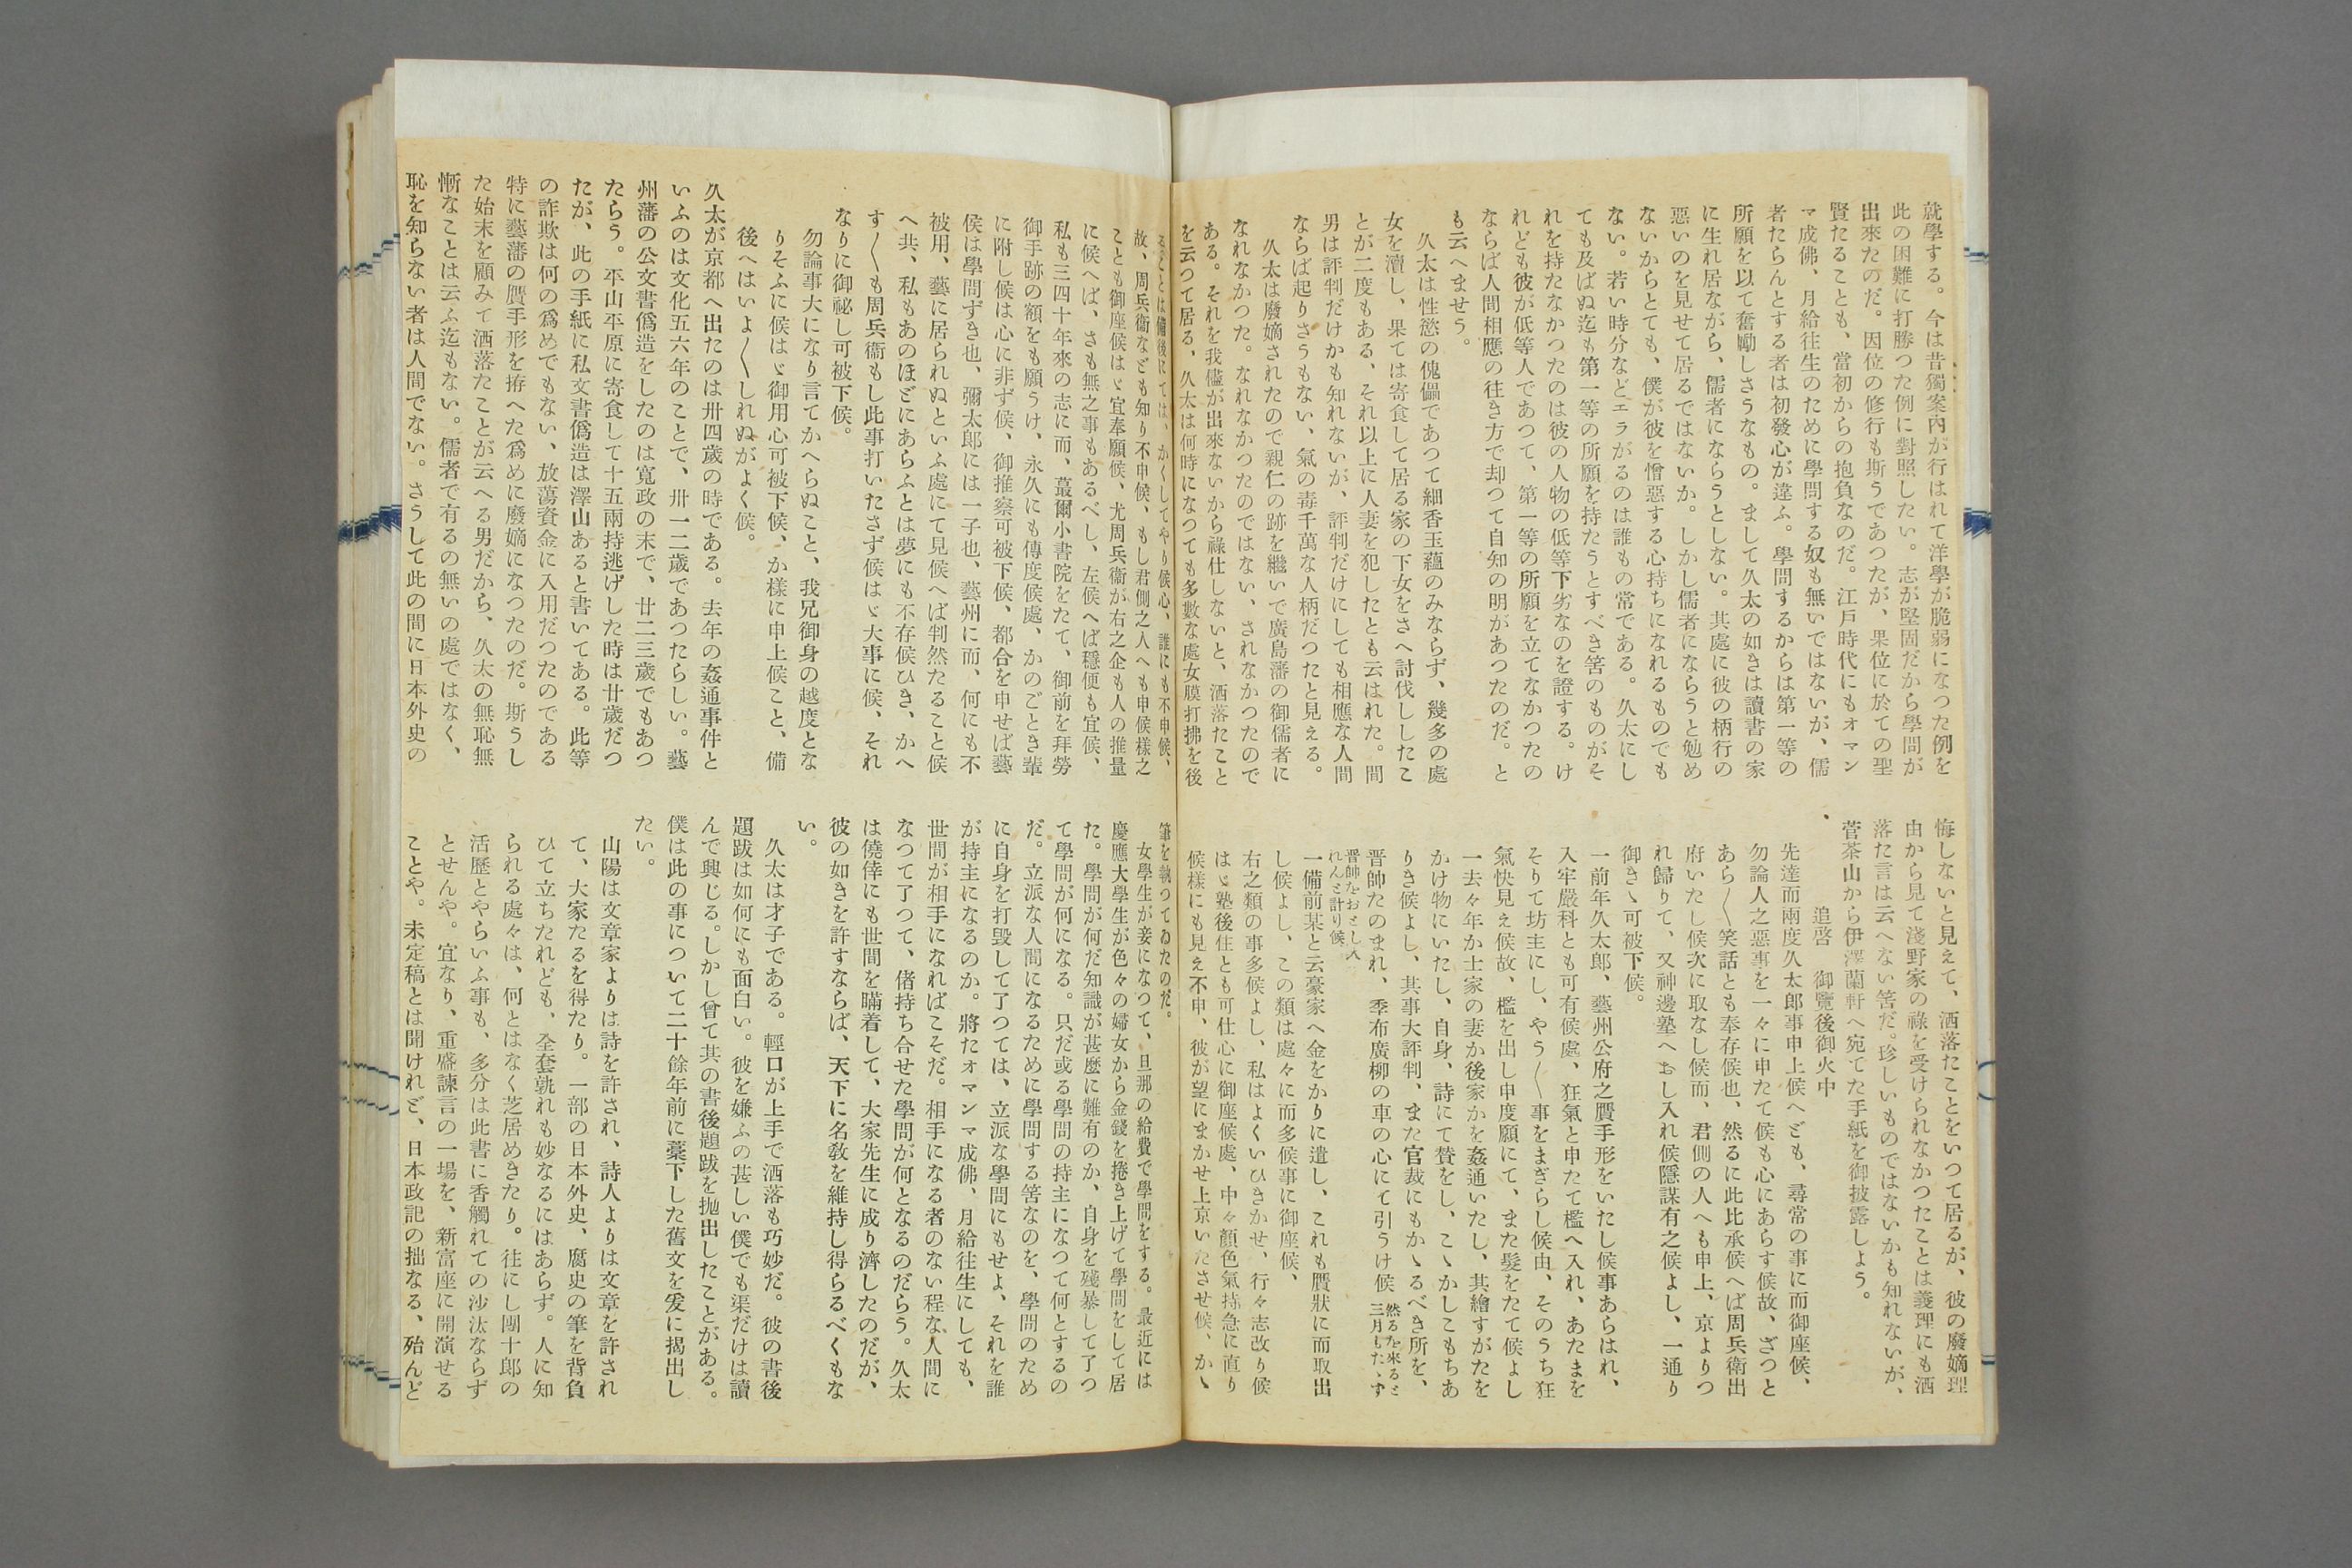 就學する。今は昔獨案內が行はれて洋學が脆弱になつた例を
此の困難に打勝つた例に對照したい。志が堅固だから學問が
出來たのだ。因位の修行も斯うであつたが、果位に於ての聖
賢たることも、當初からの抱負なのだ。江戶時代にもオマン
マ成佛、月給往生のために學問する奴も無いではないが、儒
者たらんとする者は初發心が違ふ。學問するからは第一等の
所願を以て奮勵しさうなもの。まして久太の如きは讀書の家
に生れ居ながら、儒者にならうとしない。其處に彼の柄行の
惡いのを見せて居るではないか。しかし儒者にならうと勉め
ないからとても、僕が彼を憎惡する心持ちになれるものでも
ない。若い時分などエラがるのは誰もの常である。久太にし
ても及ばぬ迄も第一等の所願を持たうとすべき筈のものがそ
れを持たなかつたのは彼の人物の低等下劣なのを證する。け
れども彼が低等人であつて、第一等の所願を立てなかつたの
ならば人間相應の往き方で却つて自知の明があつたのだ。と
も云へませう。
久太は性慾の傀儡であつて細香玉蘊のみならず、幾多の處
女を瀆し、果ては寄食して居る家の下女をさへ討伐ししたこ
とが二度もある、それ以上に人妻を犯したとも云はれた。間
男は評判だけかも知れないが、評判だけにしても相應な人間
ならば起りさうもない、氣の毒千萬な人柄だつたと見える。
久太は廢嫡されたので親仁の跡を繼いで廣島藩の御儒者に
なれなかつた。なれなかつたのではない、されなかつたので
ある。それを我儘が出來ないから祿仕しないと、洒落たこと
を云つて居る、久太は何時になつても多數な處女膜打拂を後
悔しないと見えて、洒落たことをいつて居るが、彼の廢嫡理
由から見て淺野家の祿を受けられなかつたことは義理にも洒
落た言は云へない筈だ。珍しいものではないかも知れないが、
菅茶山から伊澤蘭軒へ宛てた手紙を御披露しよう。
追啓　御覽後御火中
先達而兩度久太郎事申上候へども、尋常の事に而御座候、
勿論人之惡事を一々に申たて候も心にあらす候故、ざつと
あら〱笑話とも奉存候也、然るに此比承候へば周兵衛出
府いたし候次に取なし候而、君側の人へも申上、京よりつ
れ歸りて、又神邊塾へおし入れ候隱謀有之候よし、一通り
御きゝ可被下候。
一前年久太郎、藝州公府之贋手形をいたし候事あらはれ、
入牢嚴科とも可有候處、狂氣と申たて檻へ入れ、あたまを
そりて坊主にし、やう〱事をまぎらし候由、そのうち狂
氣快見え候故、檻を出し申度願にて、また髮をたて候よし
一去々年か士家の妻か後家かを姦通いたし、其繪すがたを
かけ物にいたし、自身、詩にて贊をし、こゝかしこもちあ
りき候よし、其事大評判、また官裁にもかゝるべき所を、
晋帥たのまれ、季布廣柳の車の心にて引うけ候 然るを來ると三月もたゝず
晋帥をおとし入れんと計り候、
一備前某と云豪家へ金をかりに遣し、これも贋狀に而取出
し候よし、この類は處々に而多候事に御座候、
右之類の事多候よし、私はよくいひきかせ、行々志改り候
はゞ塾後住とも可仕心に御座候處、中々顏色氣持急に直り
候樣にも見え不申、彼が望にまかせ上京いたさせ候、かゝ
故、周兵衞なども知り不申候、もし君側之人へも申候樣之
ことも御座候はゞ宜奉願候、尤周兵衞が右之企も人の推量
に候へば、さも無之事もあるべし、左候へば穩便も宜候、
私も三四十年來の志に而、蕞爾小書院をたて、御前を拜勞
御手跡の額をも願うけ、永久にも傳度候處、かのごとき輩
に附し候は心に非ず候、御推察可被下候、都合を申せば藝
侯は學問ずき也、彌太郎には一子也、藝州に而、何にも不
被用、藝に居られぬといふ處にて見候へば判然たること候
へ共、私もあのほどにあらふとは夢にも不存候ひき、かへ
す〱も周兵衞もし此事打いたさず候はゞ大事に候、それ
なりに御祕し可被下候。
勿論事大になり言てかへらぬこと、我兄御身の越度とな
りそふに候はゞ御用心可被下候、か樣に申上候こと、備
後へはいよ〱しれぬがよく候。
久太が京都へ出たのは卅四歲の時である。去年の姦通事件と
いふのは文化五六年のことで、卅一二歲であつたらしい。藝
州藩の公文書僞造をしたのは寬政の末で、廿二三歲でもあつ
たらう。平山平原に寄食して十五兩持逃げした時は廿歲だつ
たが、此の手紙に私文書僞造は澤山あると書いてある。此等
の詐欺は何の爲めでもない、放蕩資金に入用だつたのである
特に藝藩の贋手形を拵へた爲めに廢嫡になつたのだ。斯うし
た始末を顧みて洒落たことが云へる男だから、久太の無恥無
慚なことは云ふ迄もない。儒者で有るの無いの處ではなく、
恥を知らない者は人間でない。さうして此の間に日本外史の
筆を執つてゐたのだ。
女學生が妾になつて、旦那の給費で學問をする。最近には
慶應大學生が色々の婦女から金錢を捲き上げて學問をして居
た。學問が何だ知識が甚麼に難有のか、自身を殘暴して了つ
て學問が何になる。只だ或る學問の持主になつて何とするの
だ。立派な人間になるために學問する筈なのを、學問のため
に自身を打毀して了つては、立派な學問にもせよ、それを誰
が持主になるのか。將たオマンマ成佛、月給往生にしても、
世間が相手になればこそだ。相手になる者のない程な人間に
なつて了つて、偖持ち合せた學問が何となるのだらう。久太
は僥倖にも世間を瞞着して、大家先生に成り濟したのだが、
彼の如きを許すならば、天下に名敎を維持し得らるべくもな
い。
久太は才子である。輕口が上手で洒落も巧妙だ。彼の書後
題跋は如何にも面白い。彼を嫌ふの甚しい僕でも渠だけは讀
んで興じる。しかし曾て其の書後題跋を抛出したことがある。
僕は此の事について二十餘年前に藁下した舊文を爰に揭出し
たい。
山陽は文章家よりは詩を許され、詩人よりは文章を許され
て、大家たるを得たり。一部の日本外史、腐史の筆を背負
ひて立ちたれども、全套孰れも妙なるにはあらず。人に知
られる處々は、何とはなく芝居めきたり。往にし團十郎の
活歷とやらいふ事も、多分は此書に香觸れての沙汰ならず
とせんや。宜なり、重盛諫言の一場を、新富座に開演せる
ことや。未定稿とは聞けれど、日本政記の拙なる、殆んど